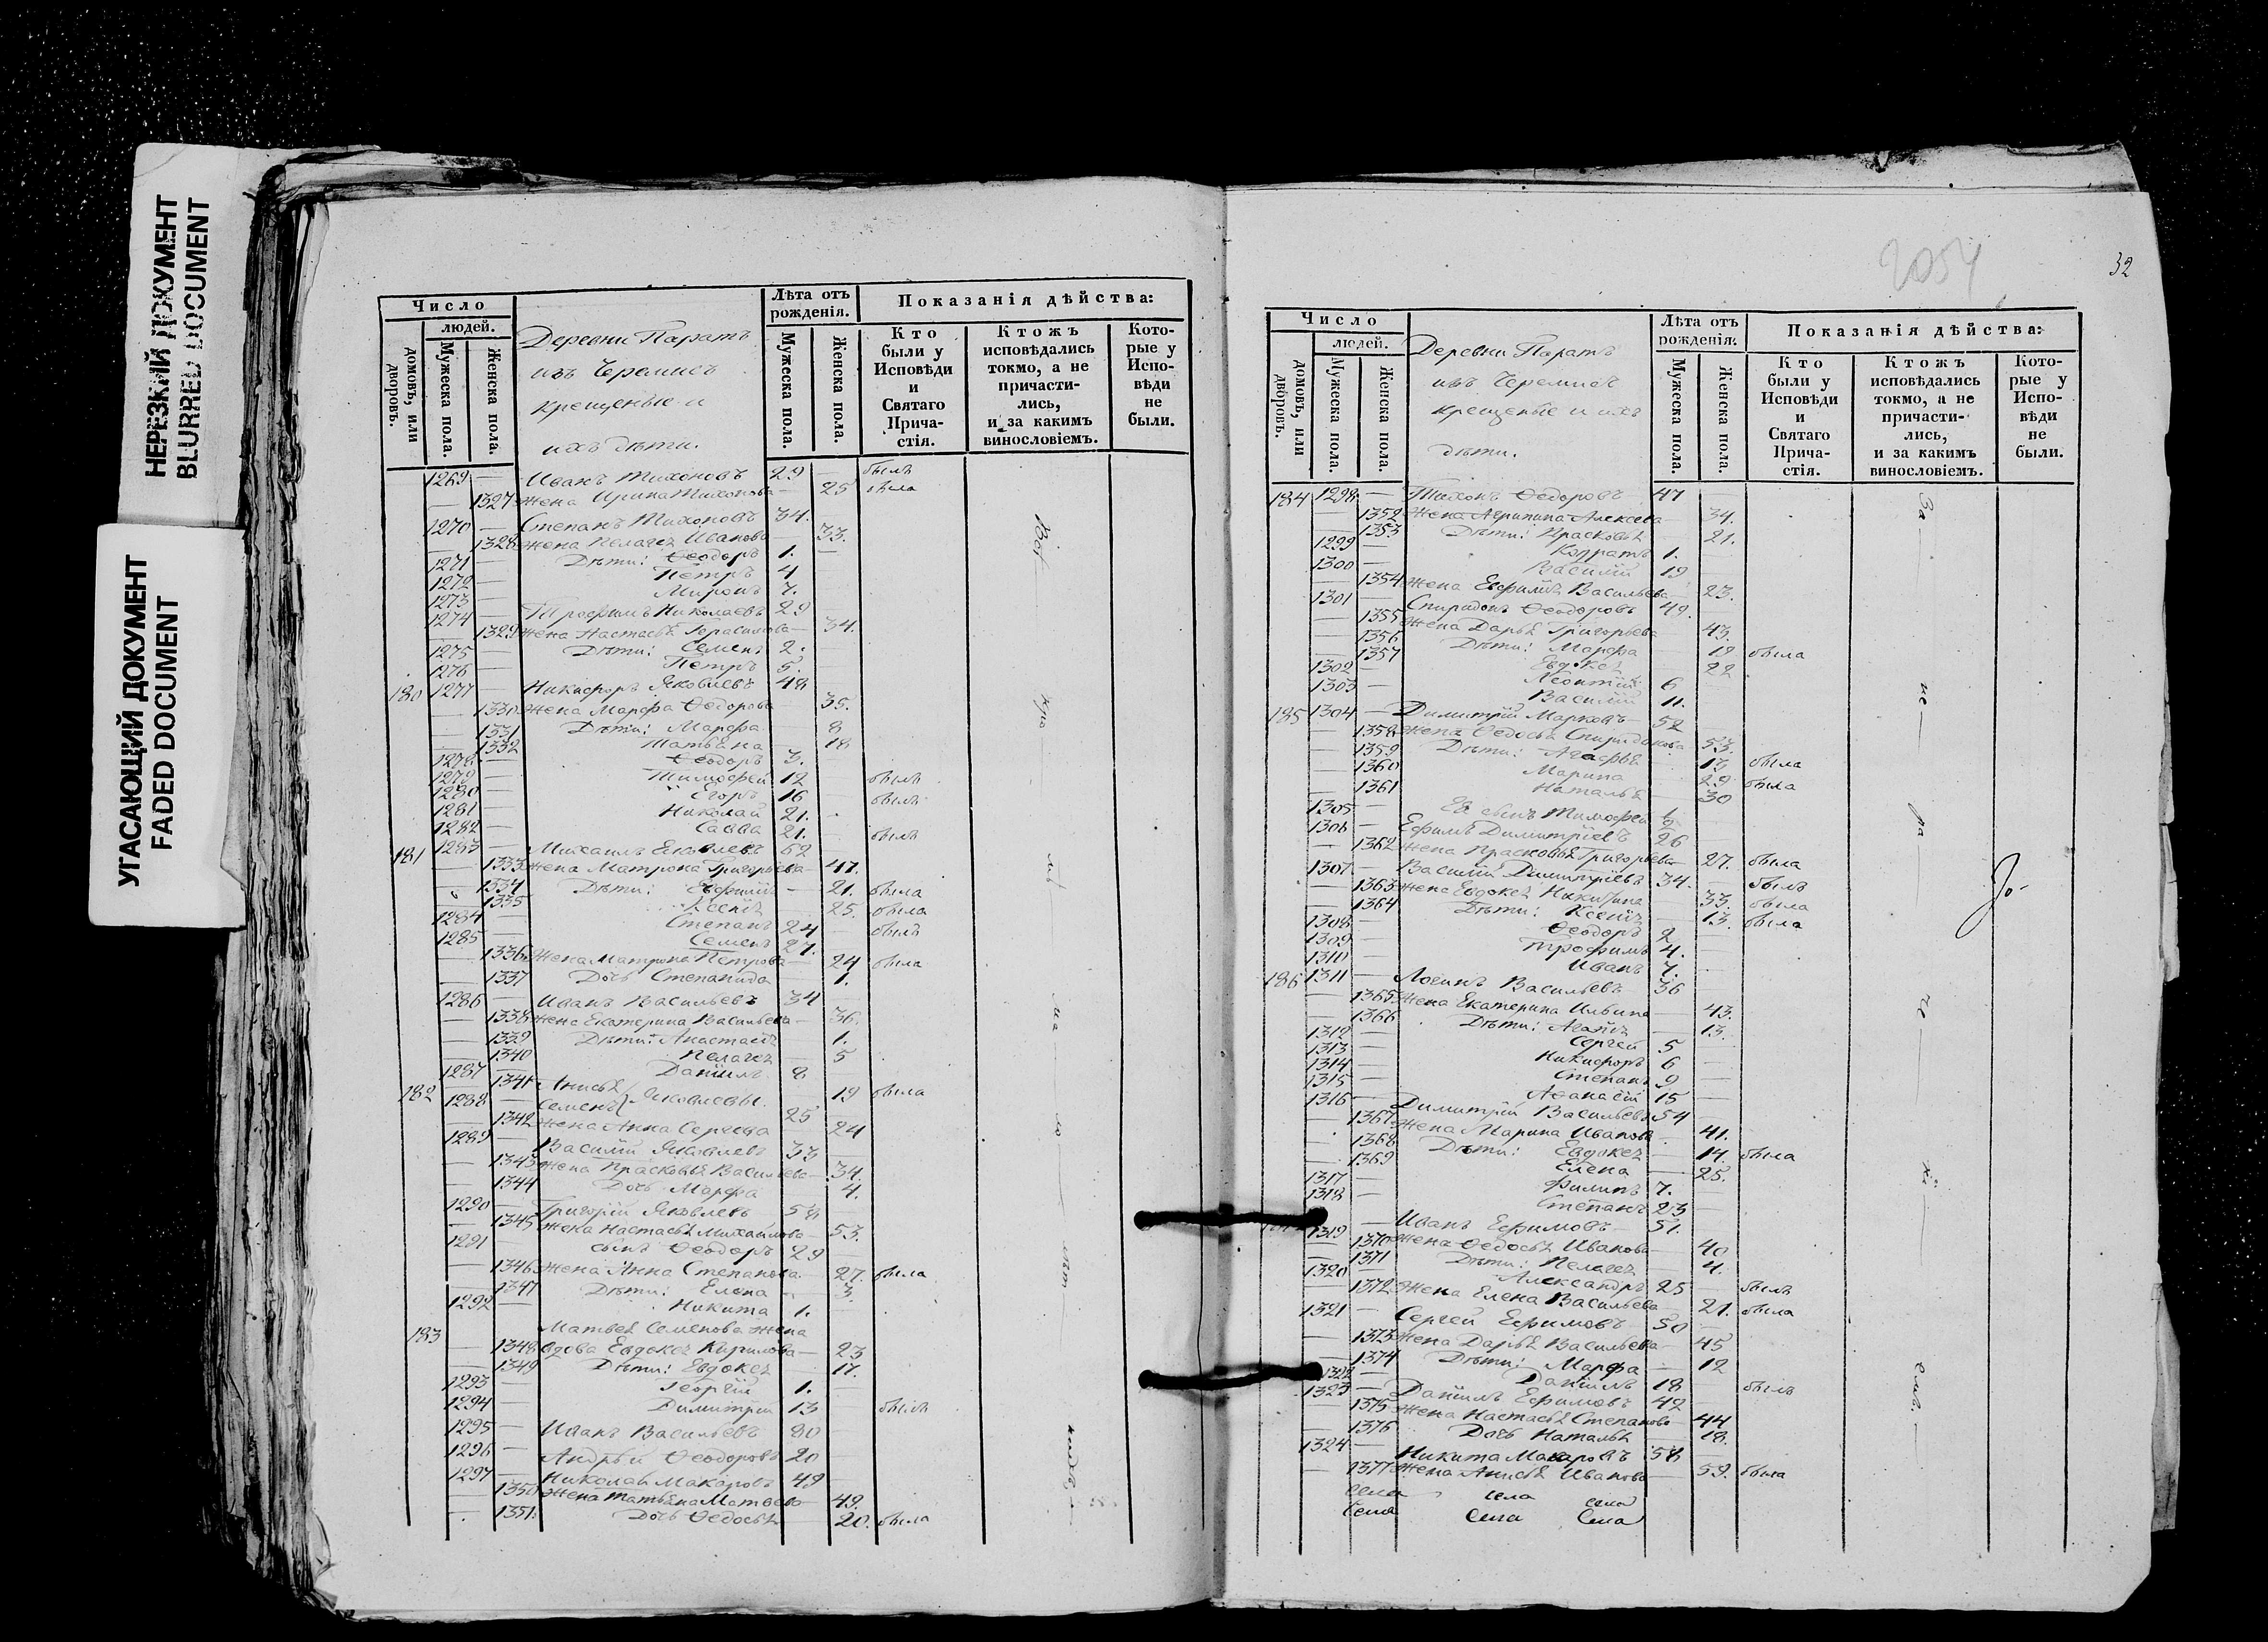 НЕРЕЗКИЙ ДОКУМЕНТ
BLURRED DOCUMENT
УГАСАЮЩИЙ ДОКУМЕНТ
FADED DOCUMENT
Число
людей.
домовъ, или дворовъ.
Мужеска пола.
Женска пола.
Деревни Паратъ
изъ Черемисъ
крещеные и
ихъ дѣти.
Лѣта отъ рожденія.
Мужеска пола.
Женска пола.
Показанія дѣйства:
Кто были у Исповѣди и Святаго Прича-стія.
Ктожъ исповѣдались токмо, а не причасти-лись, и за какимъ винословіемъ.
Кото-рые у Испо-вѣди не были.
1269 — Иванъ Тихоновъ 29 — былъ
— 1327 жена Ирина Тихонова — 25 была
1270 — Степанъ Тихоновъ 34.
— 1328 жена Пелагея Иванова — 33.
1271 — Дѣти: Ѳеодоръ 1. —
1272 — Петръ 4
1273 — Миронъ 7.
1274 — Трофимъ Николаевъ 29
— 1329 жена Настасья Герасимова — 34.
1275 — Дѣти: Семенъ 2.
1276 — Петръ 5.
180 1277 — Никифоръ Яковлевъ 48
— 1330 жена Марфа Ѳедорова — 35.
— 1331 Дѣти: Марфа — 8
— 1332 Татьяна — 18
1278 — Ѳеодоръ 3.
1279 — Тимофей 12 былъ
1280 — Егоръ 16 былъ
1281 — Николай 21.
1282 — Савва 21. былъ
181 1283 — Михаилъ Яковлевъ 62
— 1333 жена Матрона Григорьева — 47.
1334 Дѣти: Евфимія — 21. была
1335 Ксенія — 25. была
1284 — Степанъ 24 — былъ
1285 — Семенъ 27.
— 1336 жена Матрона Петрова — 24 была
— 1337 Дочь Степанида 1.
1286 — Иванъ Васильевъ 34
— 1338 жена Екатерина Васильева — 36.
— 1339 Дѣти: Анастасія 1.
— 1340 Пелагея — 5
1287 — Даніилъ 8
182 — 1341 Анисья — 19 была
1288 — Семенъ} Яковлевы. 25
— 1342 жена Анна Сергеева — 24
1289 — Василій Яковлевъ 33
— 1343 жена Прасковья Васильева — 34.
— 1344 Дочь Марфа — 4.
1290 — Григорій Яковлевъ 58
— 1345 жена Настасья Михаилова — 53.
1291 — сынъ Ѳеодоръ 29
— 1346 жена Анна Степанова — 27. была
— 1347 Дѣти: Елена — 3.
1292 — Никита 1.
183 Матвея Семенова жена
— 1348 вдова Евдокея Кирилова — 23
— 1349 Дѣти: Евдокея — 17.
1293 — Георгій 1. —
1294 — Димитрій 13 былъ
1295 — Иванъ Васильевъ 80
1296 — Андрей Ѳеодоровъ 20
1297 — Николай Макаровъ 49
— 1350 жена Татьяна Матвеева — 49.
1351. Дочь Ѳедосья 20. была
2054
32
Число
людей.
домовъ, или дворовъ.
Мужеска пола.
Женска пола.
Деревни Паратъ
изъ Черемисъ
крещеные и ихъ
дѣти.
Лѣта отъ рожденія.
Мужеска пола.
Женска пола.
Показанія дѣйства:
Кто были у Исповѣди и Святаго Прича-стія.
Ктожъ исповѣдались токмо, а не причасти-лись, и за какимъ винословіемъ.
Кото-рые у Испо-вѣди не были.
184 1298 — Тихонъ Ѳедоровъ 47
— 1352 жена Агрипина Алексеева — 34.
— 1353 Дѣти: Прасковья — 21.
1299 — Кодратъ 1.
1300 — Василій 19
— 1354 жена Евфимія Васильева — 23.
1301 — Спиридонъ Ѳеодоровъ 49.
— 1355 жена Дарья Григорьева — 43.
— 1356 Дѣти: Марфа — 19 была
— 1357 Евдокея 22
1302 — Леонтій 6
1303 — Василій 11.
185 1304 — Димитрій Марковъ 52
— 1358 жена Ѳедосья Спиридонова 53.
— 1359 Дѣти: Агафья — 13 была
— 1360 Марина — 29 была
— 1361 Наталья — 30
1305 — Ея сынъ Тимофей
1306 — Ефимъ Димитріевъ 26
— 1362 жена Прасковья Григорьева — 27. была
1307 — Василій Димитріевъ 34. — былъ
— 1363 жена Евдокея Никитина 33. была
— 1364 Дѣти: Ксенія — 13. была
1308 — Ѳеодоръ 2
1309 — Трофимъ 4.
1310 — Иванъ 7.
186 1311 — Логинъ Васильевъ 36
— 1365 жена Екатерина Ильина — 43.
— 1366 Дѣти: Агафія — 13.
1312 — Сергей 5
1313 — Никифоръ 6
1314 — Степанъ 9
1315 — Аѳанасій 15
1316 — Димитрій Васильевъ 54
1367 жена Марина Иванова — 41.
— 1368 Дѣти: Евдокея — 14. была
— 1369 Елена — 25.
1317 — Филипъ 7.
1318 — Степанъ 23
1319 — Иванъ Ефимовъ 51.
— 1370 жена Ѳедосья Иванова — 40
— 1371 Дѣти: Пелагея — 4.
1320 — Александръ 25 — былъ
— 1372 жена Елена Васильева — 21. была
1321 — Сергей Ефимовъ 50 —
— 1373 жена Дарья Васильева 45
— 1374 Дѣти: Марфа — 12
1322 — Даніилъ 18 былъ
1323 — Даніилъ Ефимовъ 42
— 1375 жена Настасья Степанова 44
— 1376 Дочь Наталья — 18.
1324 — Никита Макаровъ 58
— 1377 жена Анисья Иванова — 59. была
села села села
Села Села Села